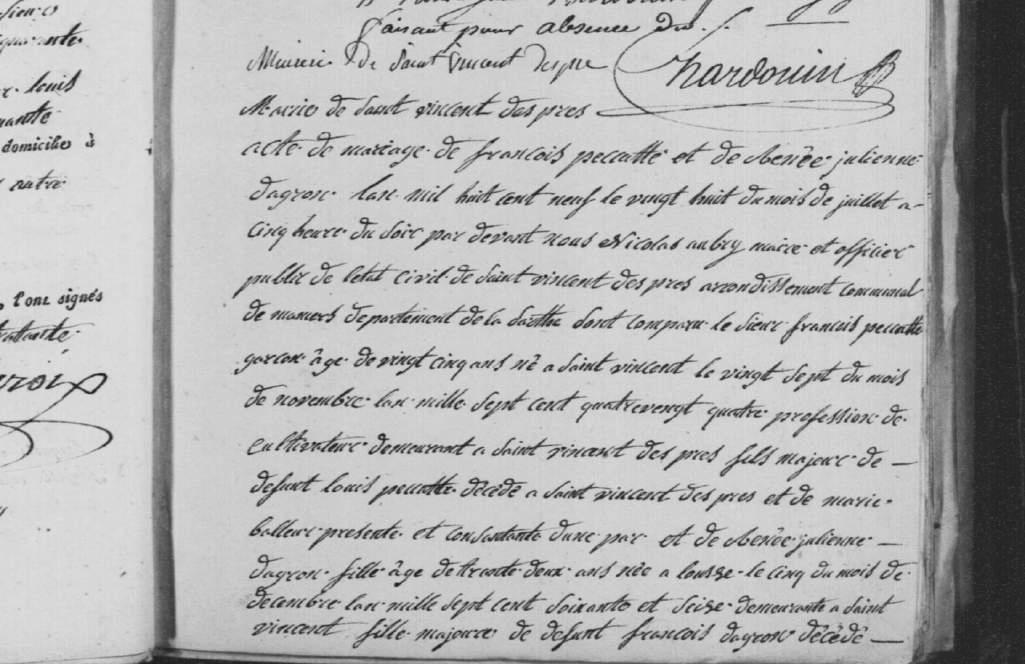 sieurs
quarante
louis
domicilié à
notre
l'ont signés
faisant pour absence du
Mairie de Saint Vincent des pre
hardouin
Mairie de Saint vincent des pres
acte de mariage de francois peccatte et de Renée julienne
dagron lan mil huit cent neuf le vingt huit du mois de juillet a
cinq heure du soir par devant nous Nicolas aubry maire et officier
public de letat civil de Saint vincent des pres arrondissement communal
de mamers departement de la Sarthe sont comparu le sieur francois peccatte
garcon âge de vingt cinq ans né a Saint vincent le vingt sept du mois
de novembre lan mille sept cent quatrevengt quatre profession de
cultivateur demeurant a Saint vincent des pres fils majeur de
defunt louis peccatte décédé a Saint vincent des pres et de marie
balleur presente et consentante dune par et de Renée julienne
dagron fille âge de trente deux ans née a lousse le cinq du mois de
decembre lan mille sept cent soixante et seise demeurante a Saint
vincent fille majeure de defunt francois dagron décédé